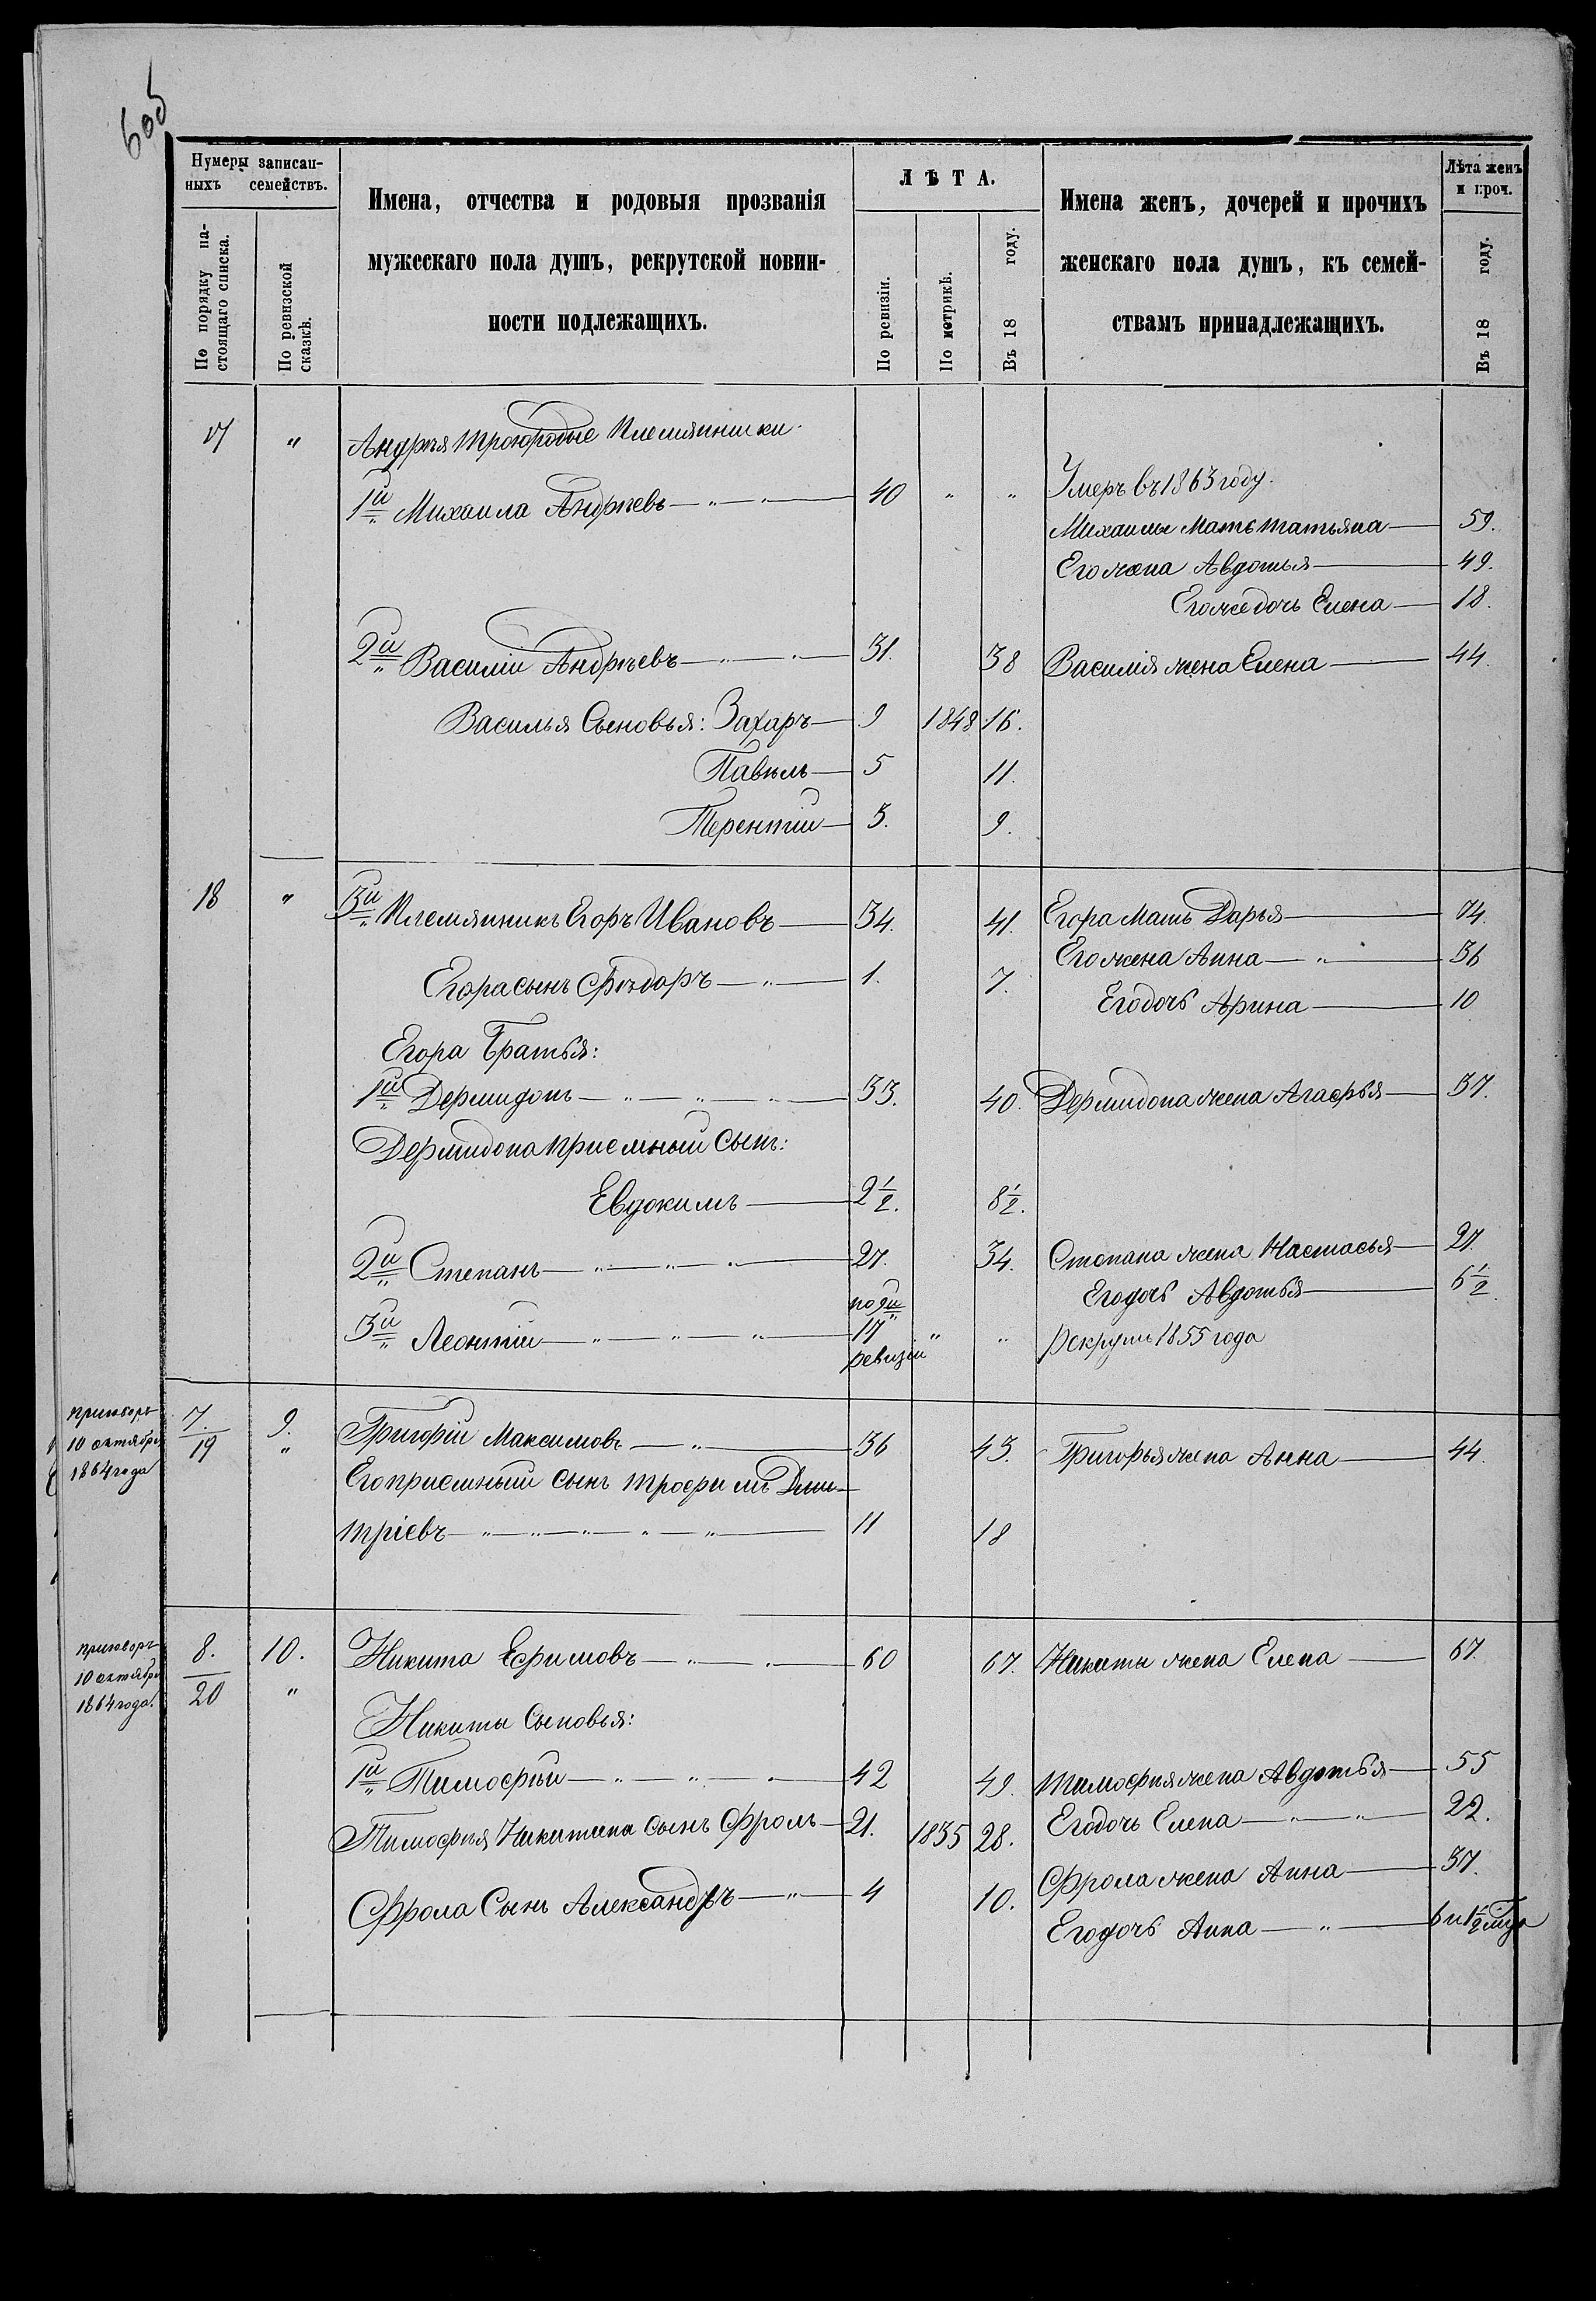 605
Нумеры записан-
ныхъ семействъ.
По порядку на-
стоящаго списка.
По ревизской
сказкѣ.
Имена, отчества и родовыя прозванія
мужескаго пола душъ, рекрутской повин-
ности подлежащихъ.
ЛѢТА.
По ревизіи.
По метрикѣ.
Въ 18 году.
Имена женъ, дочерей и прочихъ
женскаго пола душъ, къ семей-
ствамъ принадлежащихъ.
Лѣта женъ
и проч.
Въ 18 году.
17 " Андрѣя троюродые Племянники.
1й Михаила Андрѣевъ 40 " " Умеръ въ 1863 году.
Михаилы мать татьяна 59.
Его жена Авдотья 49.
Его же дочь Елена 18.
2й Василіи Андрѣевъ 31. 38 Василія жена Елена 44.
Василья Сыновья: Захаръ 9 1848 16.
Павѣлъ 5 11.
Терентіи 3. 9.
18 " 3й Племянникъ Егоръ Ивановъ 34. 41. Егора Мать Дарья 74.
Его жена Анна 36
Егора сынъ Ѳѣдоръ 1. 7.
Его дочь Арина 10
Егора Братья:
1й Дермидонъ 33. 40. Дермидона жена Агафья 37.
Дермидона приемный сынъ:
Евдокимъ 2 1/2. 8 1/2.
2й Степанъ 27. 34. Степана жена Настасья 27.
Его дочь Авдотья 6 1/2.
3й Леонтіи по 9й 17 ревизіи " " рекрутъ 1855 года
приговоръ
10 октября
1864 года
7. 9. Григорій Максимовъ 36 43. Григорья жена Анна 44.
19 "
Его приемный сынъ трофимъ Дми-
тріевъ 11 18
приговоръ
10 октября
1864 года.
8. 10. Никита Ефимовъ 60 67. Никиты жена Елена 67.
20 "
Никиты Сыновья:
1й Тимофѣй 42 49. тимофея жена Авдотья 55
Тимофея Никитина сынъ Фролъ 21. 1835 28. Его дочь Елена 22.
Фрола жена Анна 37.
Фрола Сынъ Александръ 4 10.
Его дочь Анна